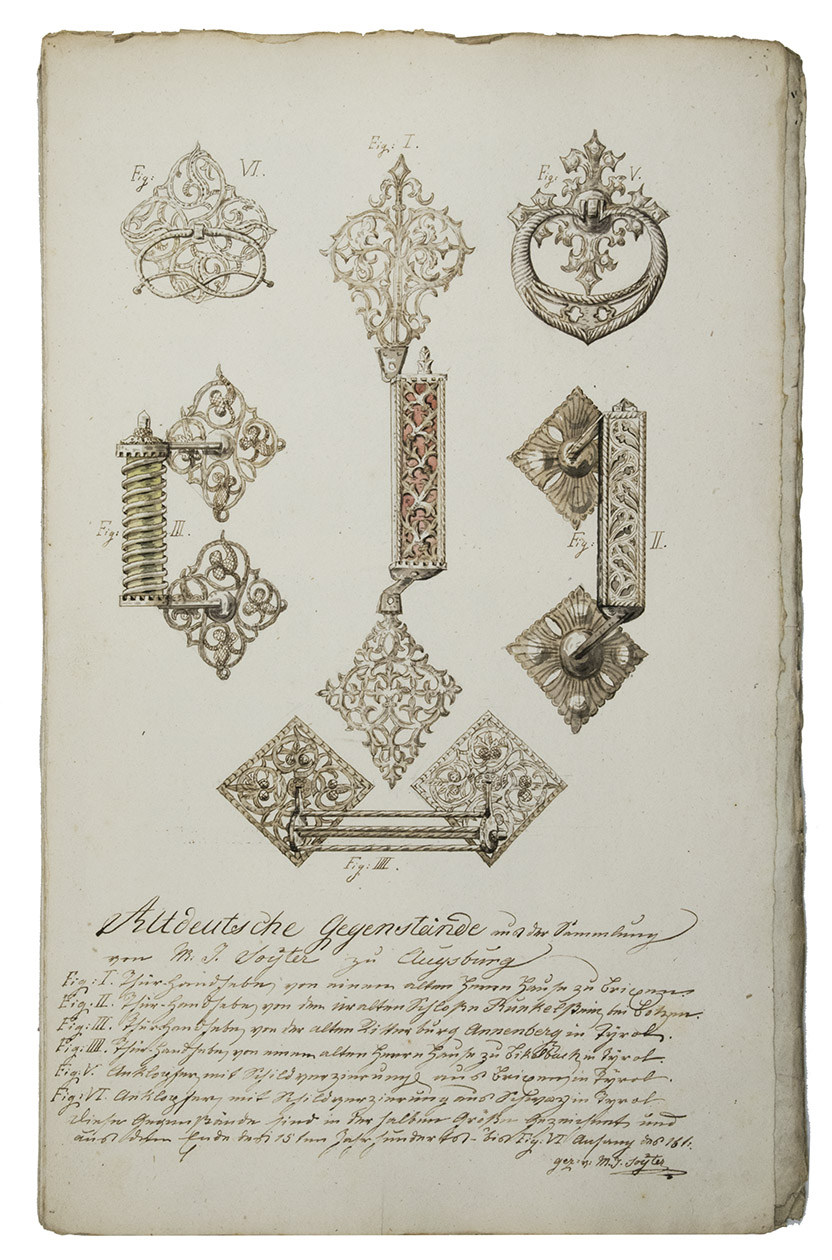 Fig: I.
Fig: VI.
Fig: V.
Fig: III.
Fig: II.
Fig: IIII.
Altdeutsche Gegenstände aus der Sammlung
von M. J. Soÿter zu Augsburg
Fig: I. Thür-Handhebe, von einem alten Herrn Hause zu Brixen.
Fig: II. Thür-Handhebe, von dem uralten Schloße Runkelstein, bei Botzen.
Fig: III. Thür-Handhebe, von der alten Ritterburg Annenberg in Tÿrol.
Fig: IIII. Thür-Handhebe, von einem alten Herrn Hause zu in Tÿrol.
Fig: V. Anklopfer, mit Schildverzierung aus Brixen, in Tÿrol.
Fig: VI. Anklopfer, mit Schildverzierung aus Schwaz in Tÿrol
Diese Gegenstände sind in der halben Größe gezeichnet und
aus dem Ende des 15ten Jahrhunderts - bis Fig: VI. Anfang des 16t.
gez: v: M. J. Soÿter